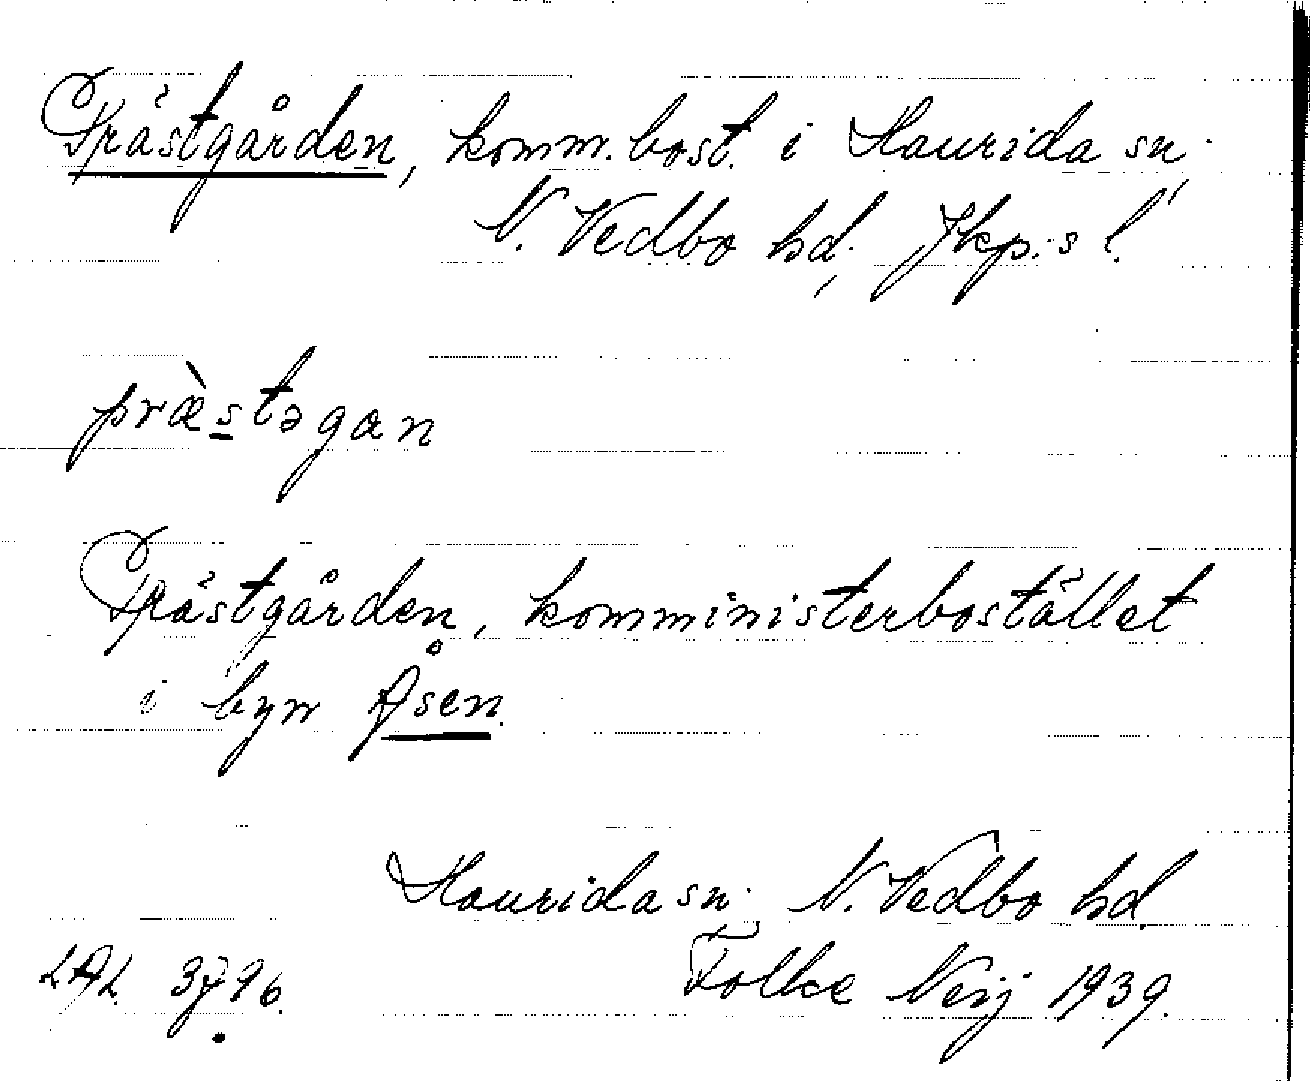 Prästgården, komm. bost. i Haurida sn.,
N. Vedbo hd, Jkp:s l.
præ̀stəgan
Prästgården, komministerbostället
i byn Åsen.
Haurida sn. N. Vedbo hd
LAL 3796. Folke Neij 1939.